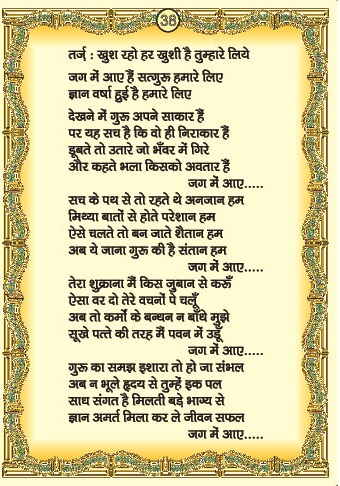 38
तर्ज़ : खुश रहो हर खुशी है तुम्हारे लिये
जग में आए हैं सत्गुरू हमारे लिए
ज्ञान वर्षा हुई है हमारे लिए
देखने में गुरू अपने साकार हैं
पर यह सच है कि वो ही निराकार हैं
डूबते तो उतारे जो भँवर में गिरे
और कहते भला किसको अवतार हैं
जग में आए.....
सच के पथ से तो रहते थे अनजान हम
मिथ्या बातों से होते परेशान हम
ऐसे चलते तो बन जाते शैतान हम
अब ये जाना गुरू की है संतान हम
जग में आए.....
तेरा शुक्राना मैं किस जुबान से करूँ
ऐसा वर दो तेरे वचनों पे चलूँ
अब तो कर्मों के बन्धन न बाँधे मुझे
सूखे पत्ते की तरह मैं पवन में उड़ूँ
जग में आए.....
गुरू का समझ इशारा तो हो जा संभल
अब न भूले हृदय से तुम्हें इक पल
साध संगत है मिलती बड़े भाग्य से
ज्ञान अमर्त मिला कर ले जीवन सफल
जग में आए.....